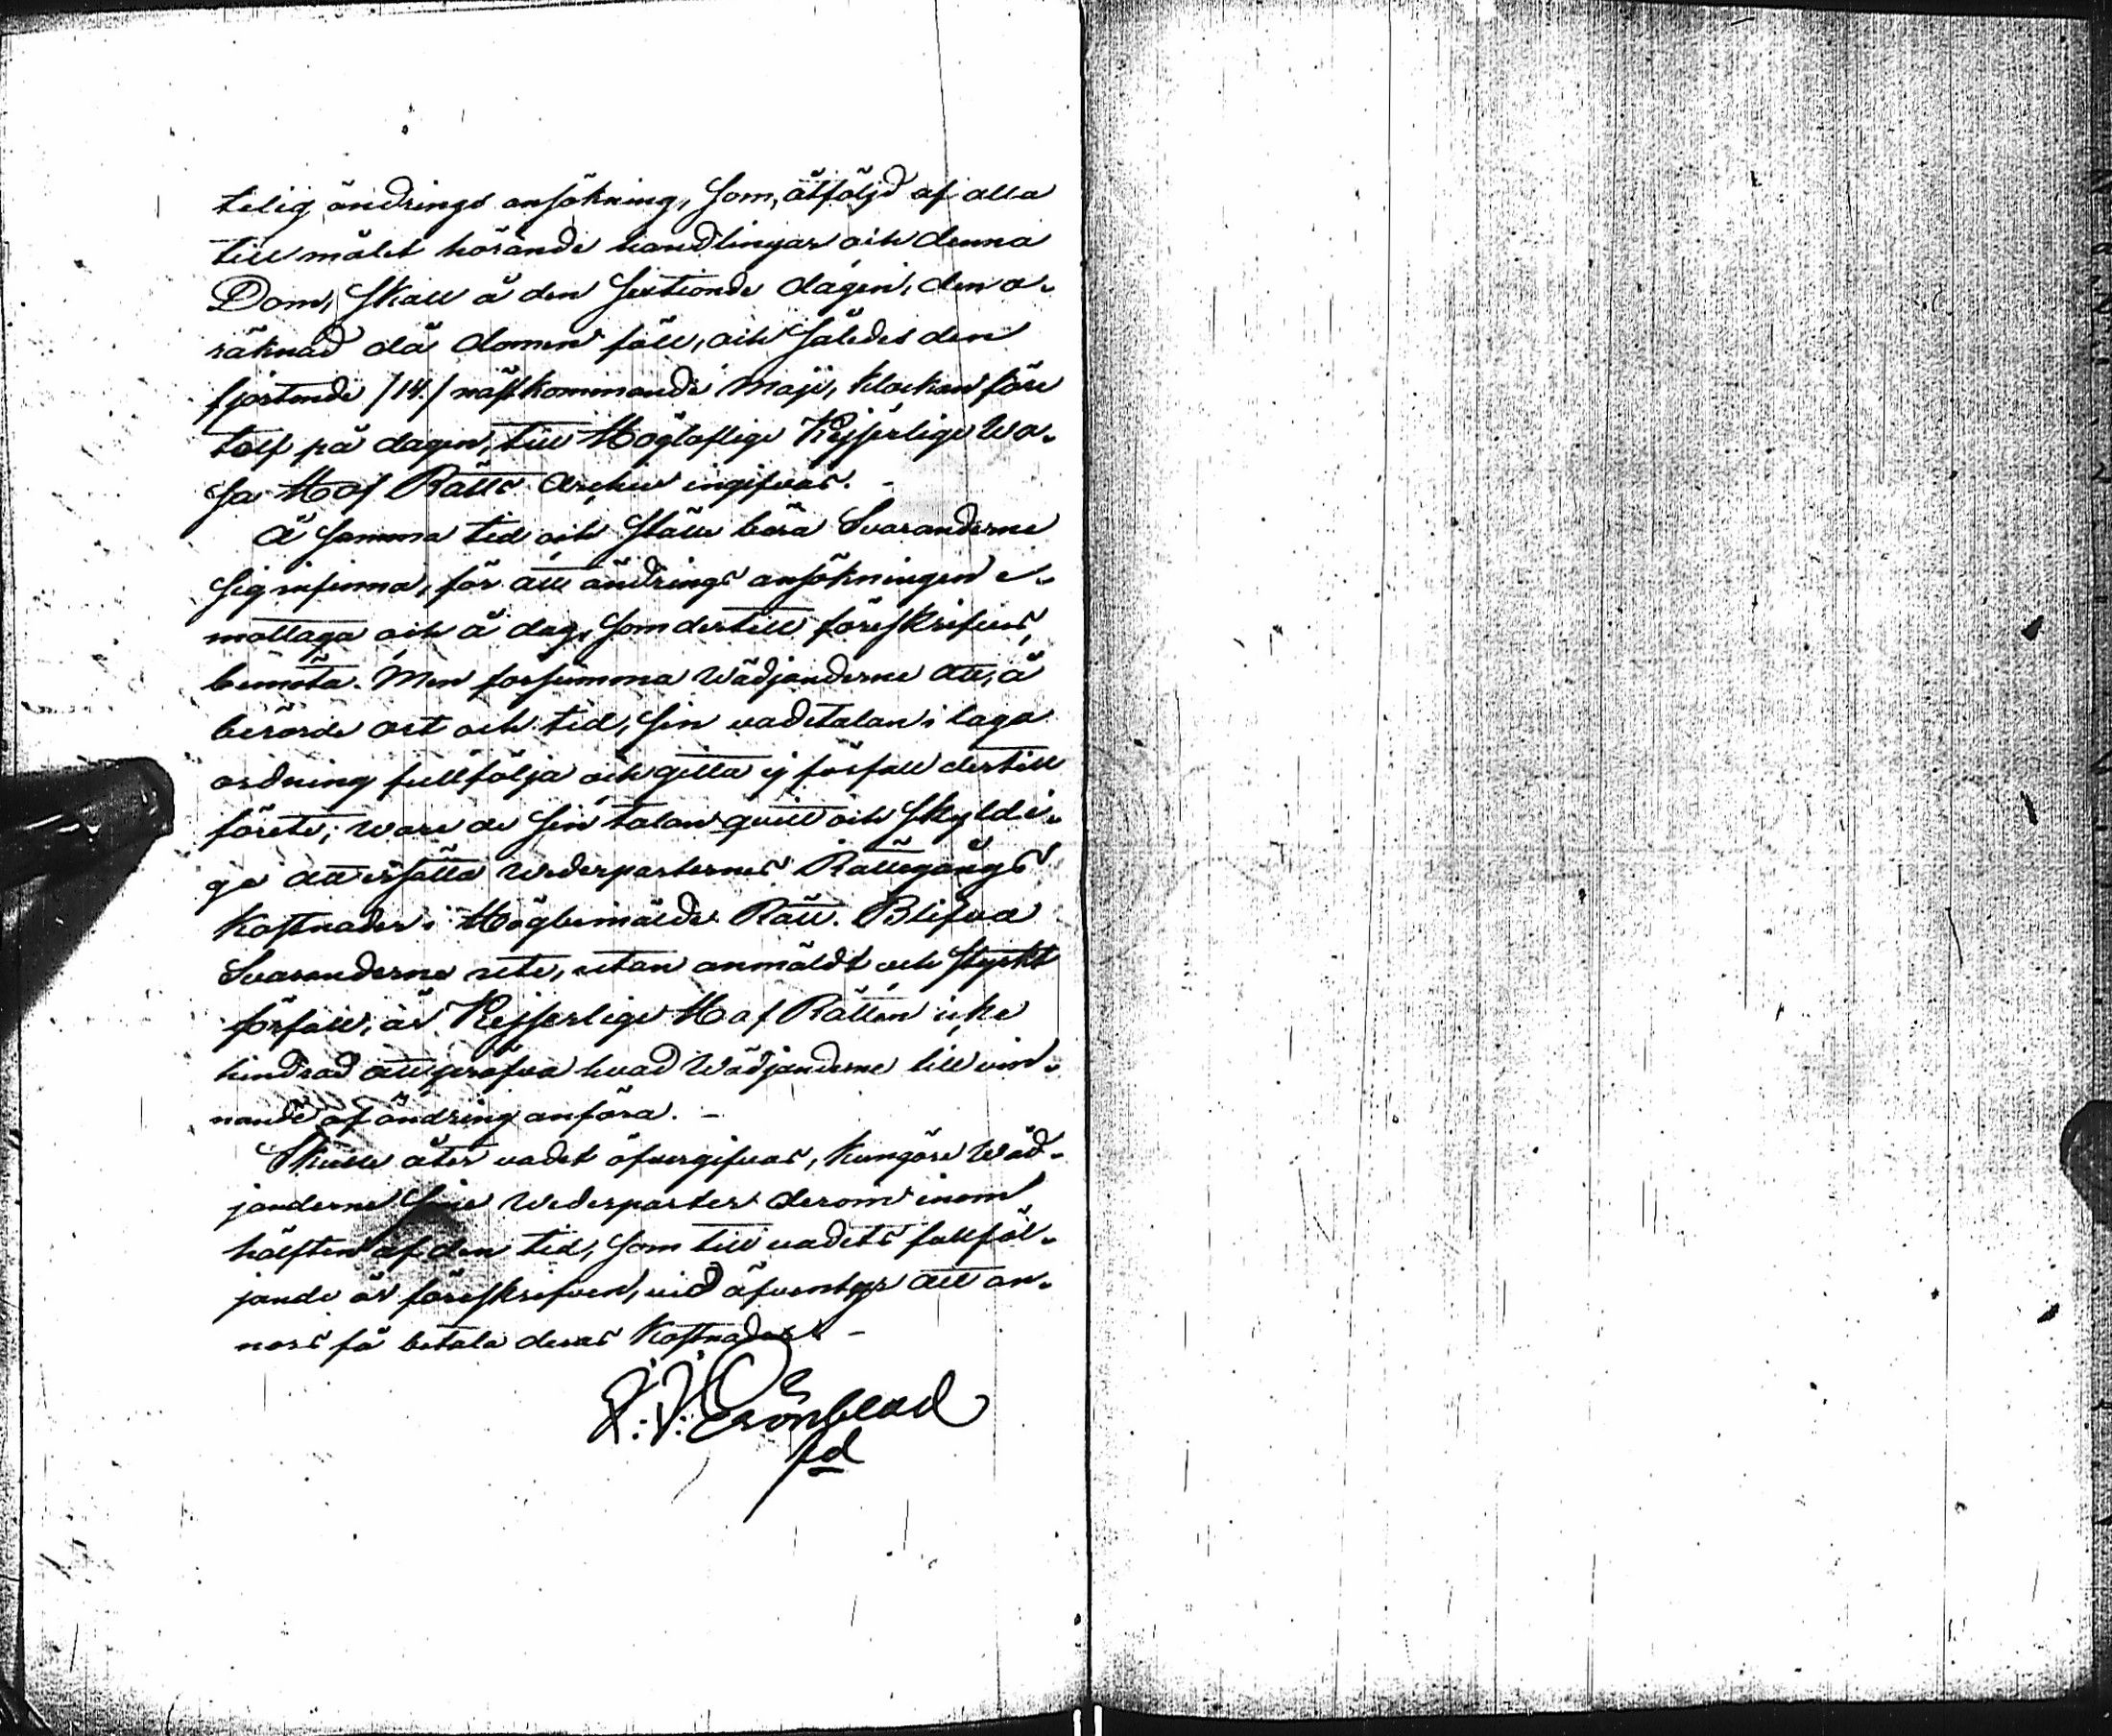 telig ändrings ansökning, som, åtföljd af alla
till målet hörande handlingar och denna
Dom, skall å den sextionde dagen, den o-
räknad då domen föll, och således den
fjortonde /14./ nästkommande Maji, klockan före
tolf på dagen, till Högloflige Kejserlige Wa-
sa Hof Rätts Archiv ingifvas. -
Å samma tid och ställe böra Svaranderne
sig infinna, för att ändrings ansökningen e-
mottaga och å dag, som dertill föreskrifves,
bemöta. Men försumma Wädjanderne att, å
berörde ort och tid, sin vadetalan i laga
ordning fullfölja och gitta ej förfall dertill
förete; ware de sin talan qvitt och skyldi-
ge att ersätta Wederparternes Rättegångs
kostnader i Högbemälde Rätt. Blifva
Svaranderne ute, utan anmäldt och styrkt
förfall, är Kejserlige Hof Rätten icke
hindrad att pröfva hvad Wädjanderne till vin-
nande af ändring anföra. -
Skulle åter vadet öfvergifvas, kungöre Wäd-
janderne sine Wederparter derom inom
hälften af den tid, som till vadets fullföl-
jande är föreskrifven, vid äfventyr att an-
nars få betala deras kostnader. -
Grönblad